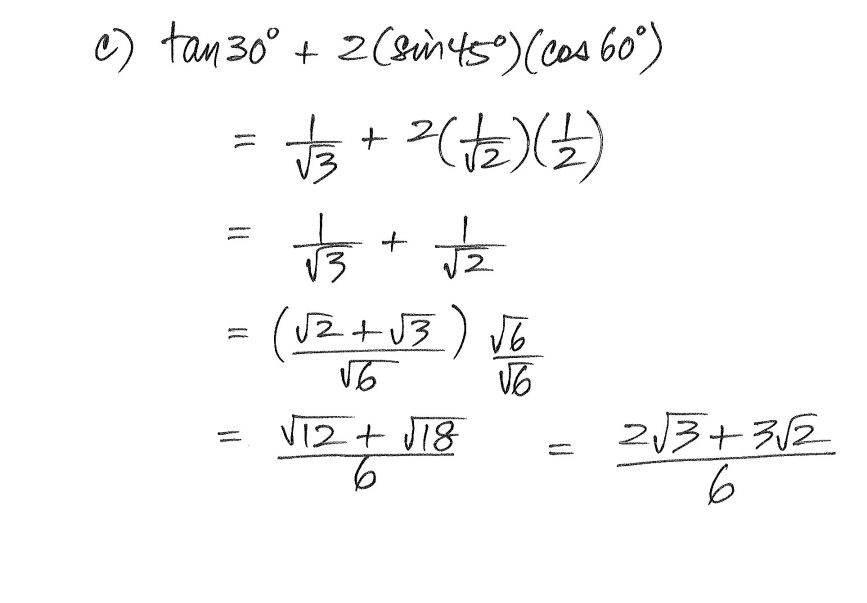 c) tan 30° + 2(sin 45°)(cos 60°)
= 1/√3 + 2(1/√2)(1/2)
= 1/√3 + 1/√2
= ((√2 + √3)/√6) √6/√6
= (√12 + √18)/6 = (2√3 + 3√2)/6